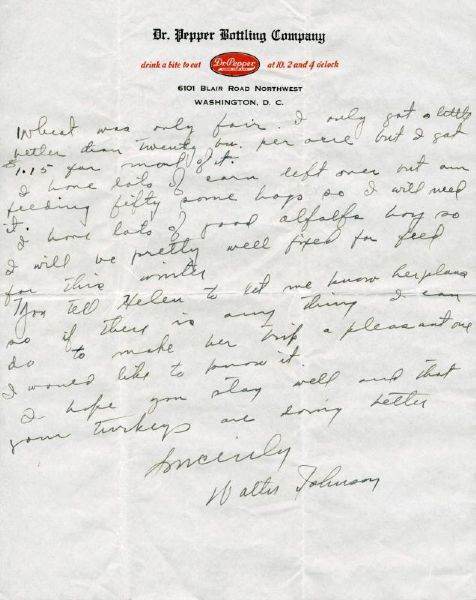 Dr. Pepper Bottling Company
drink a bite to eat Dr. Pepper at 10, 2 and 4 o'clock
6101 Blair Road Northwest
Washington, D. C.
Wheat was only fair. I only got a little
better than twenty bu. per acre but I got
1.15 for most of it.
I have lots of corn left over but am
feeding fifty some hogs so I will need
it. I have lots of good alfalfa hay so
I will be pretty well fixed for feed
for this winter
You tell Helen to let me know her plans
so if there is any thing I can
do to make her trip a pleasant one
I would like to know it.
I hope you stay well and that
your turkeys are doing better
Sincerely
Walter Johnson